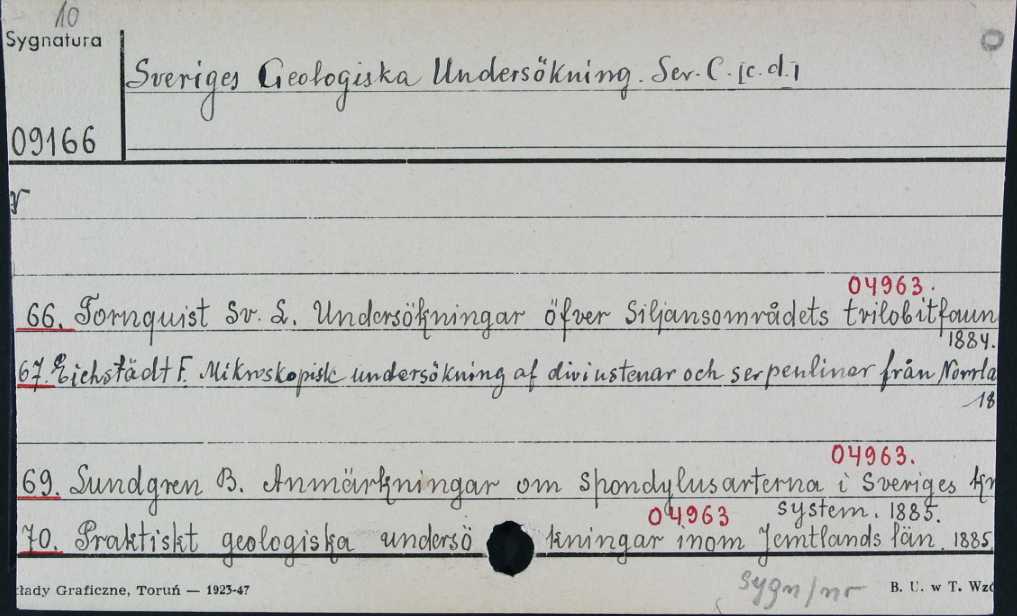 10
Sygnatura
Sveriges Geologiska Undersökning. Ser. C. [c.d.]
09166
04963.
66. Tornquist Sv. L. Undersökningar öfver Siljansområdets trilobitfaun
1884.
67. Eichstädt F. Mikroskopisk undersökning af diviustenar och serpenliner från Norrla
18
04963.
69. Lundgren B. Anmärkningar om Spondylusarterna i Sveriges kr
system. 1885.
04963
70. Praktiskt geologiska undersökningar inom Jemtlands län. 1885
kłady Graficzne, Toruń — 1923-47
sygn/nr
B. U. w T. Wzó